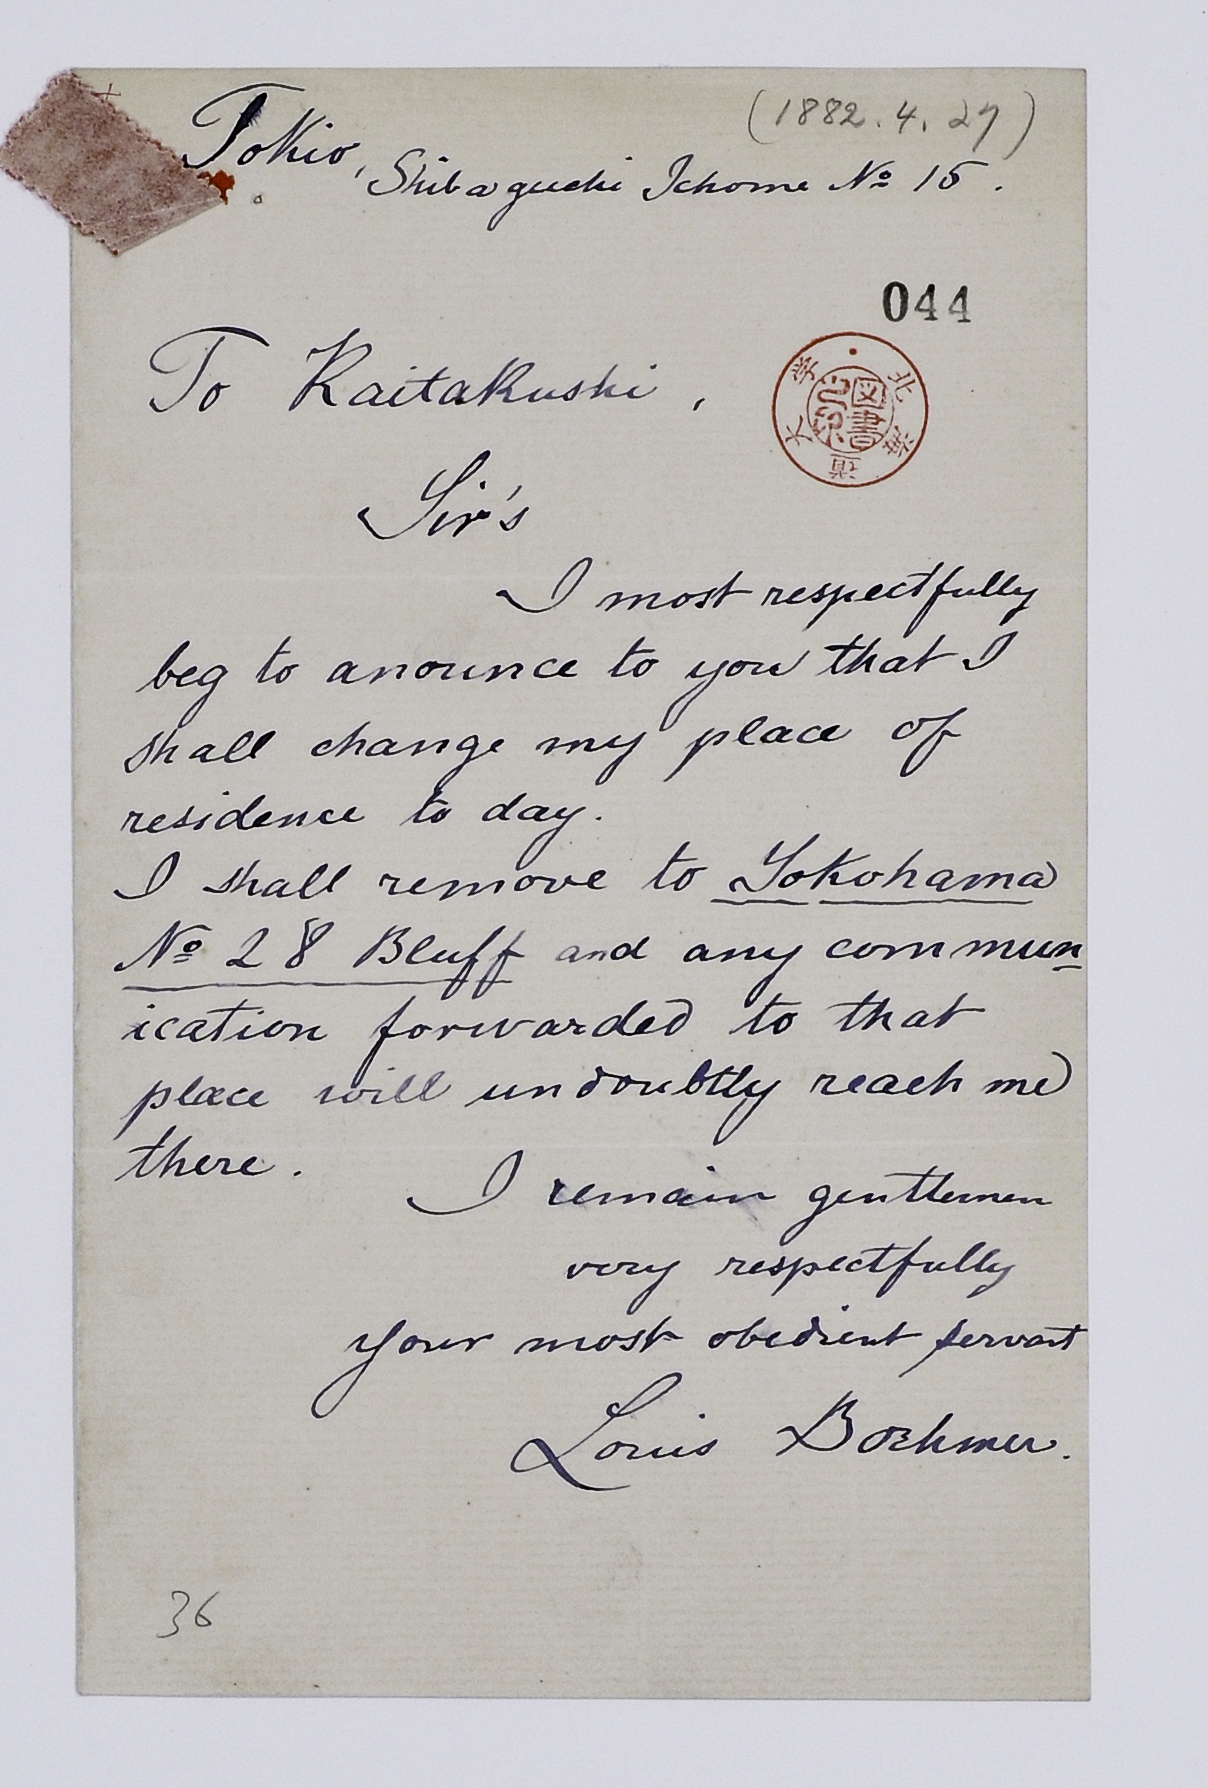 (1882.4.27)
Tokio, Shibaguchi Ichome No 15.
044
北海道大学
図書之印
To Kaitakushi,
Sir's
I most respectfully
beg to anounce to you that I
shall change my place of
residence to day.
I shall remove to Yokohama
No 28 Bluff and any commun
ication forwarded to that
place will undoubtly reach me
there.
I remain gentlemen
very respectfully
your most obedient servant
Louis Boehmer.
36